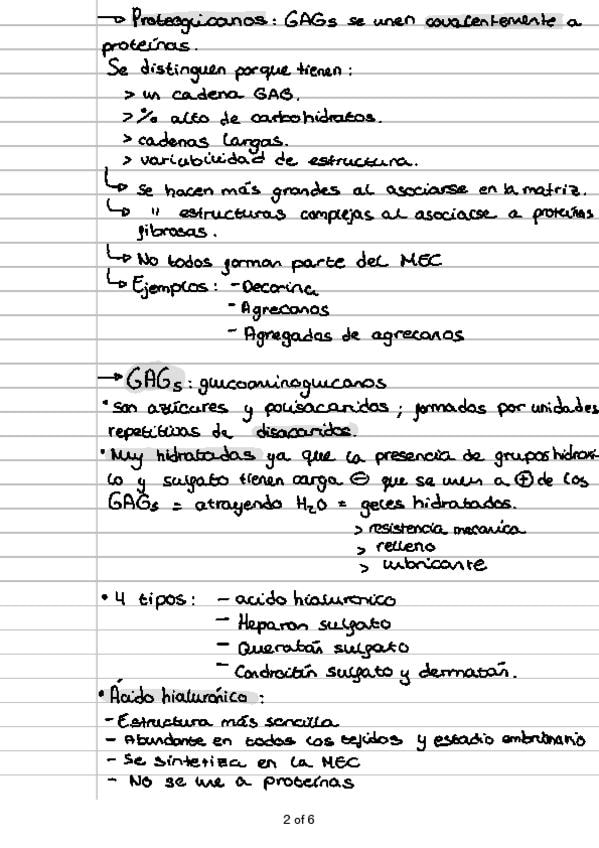 → Proteoglicanos: GAGs se unen covalentemente a
proteínas.
Se distinguen porque tienen:
> un cadena GAG.
> % alto de carbohidratos.
> cadenas largas.
> variabilidad de estructura.
↳ Se hacen más grandes al asociarse en la matriz.
↳ " estructuras complejas al asociarse a proteínas
fibrosas.
↳ No todos forman parte del MEC
↳ Ejemplos: - Decorina
- Agrecanos
- Agregadas de agrecanos
→ GAGs: glucoaminoglucanos
• son azúcares y polisacaridos; formadas por unidades
repetitivas de disacaridos.
• Muy hidratadas ya que la presencia de grupos hidroxi-
lo y sulfato tienen carga ⊖ que se unen a ⊕ de los
GAGs = atrayendo H₂O = geles hidratados.
> resistencia mecanica
> relleno
> lubricante
• 4 tipos: - acido hialuronico
- Heparan sulfato
- Queratán sulfato
- Condroitín sulfato y dermatán.
• Ácido hialurónico:
- Estructura más sencilla
- Abundante en todos los tejidos y estadio embrionario
- Se sintetiza en la MEC
- No se une a proteínas
2 of 6